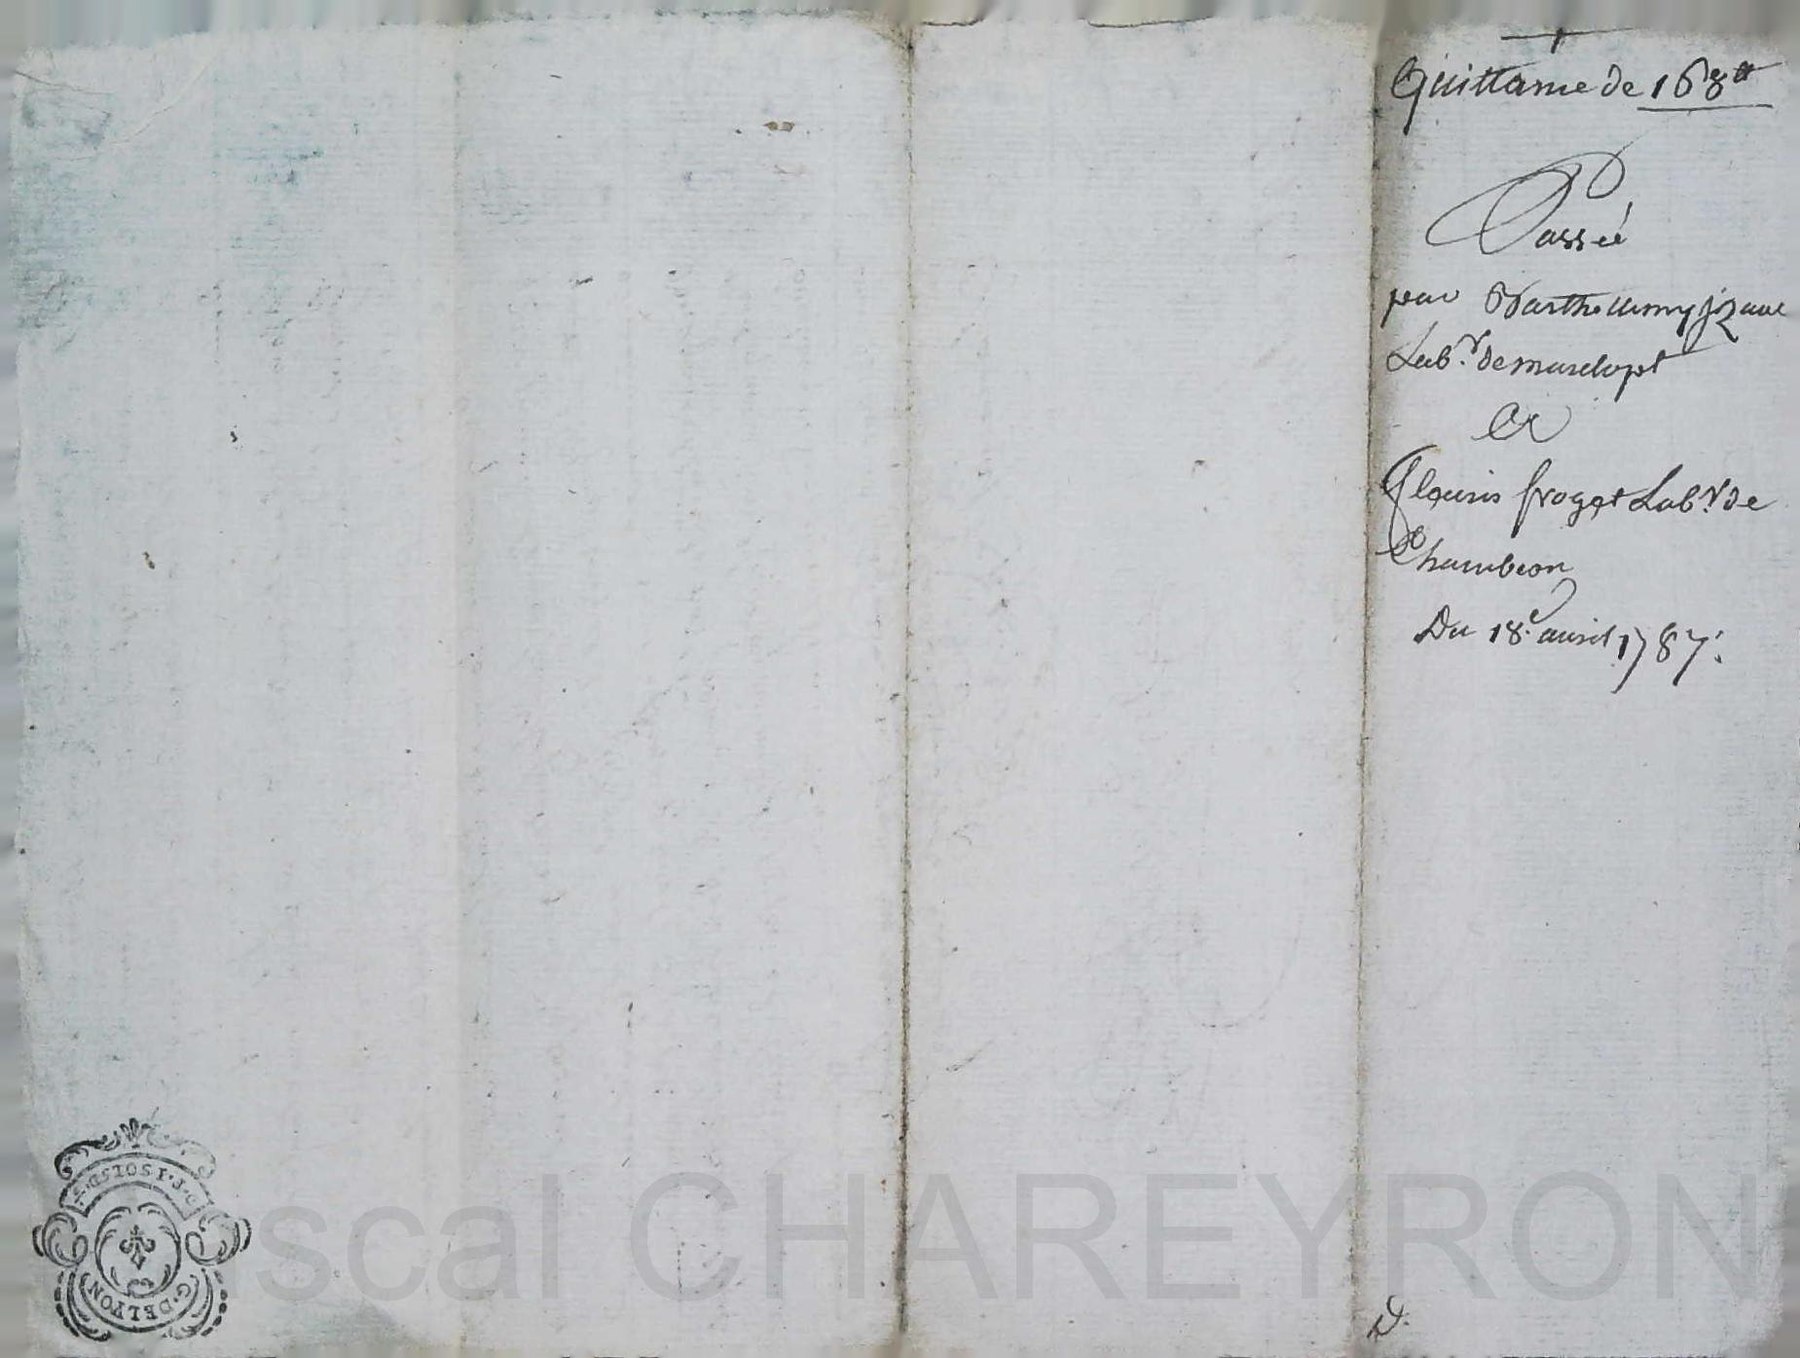 Quittance de 168 tt
Passée
par Barthelemy
Lab.r de marclopt
A
fleuris froget Lab.r de
Chambeon
Du 18.e avril 1787.
D.
G. DE LYON
scal CHAREYRON